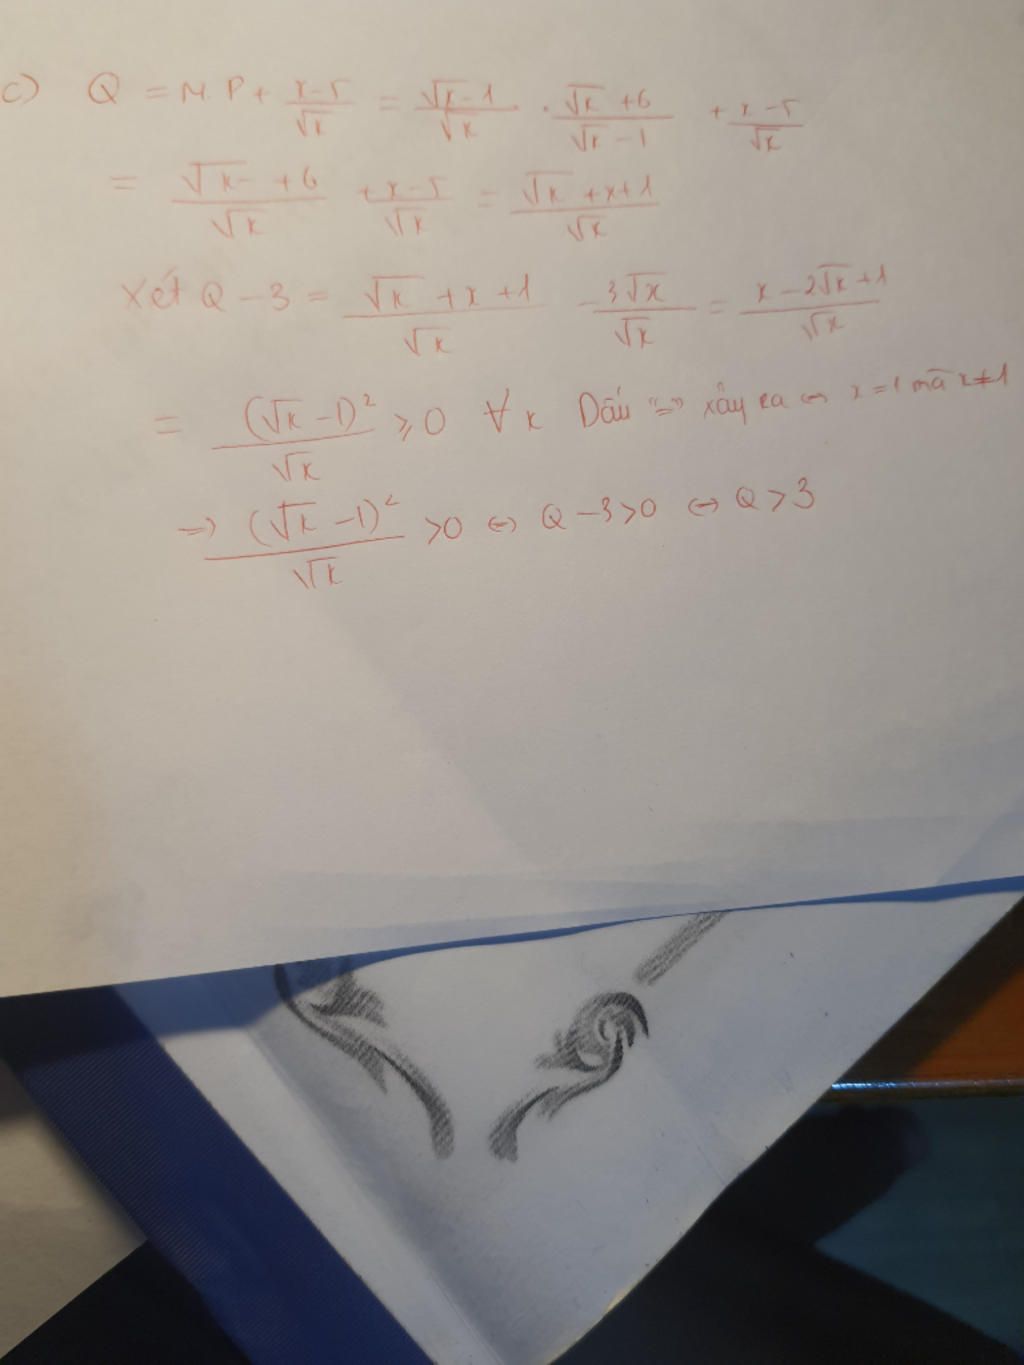 c) Q = M.P + \frac{x-5}{\sqrt{x}} = \frac{\sqrt{x}-1}{\sqrt{x}} . \frac{\sqrt{x}+6}{\sqrt{x}-1} + \frac{x-5}{\sqrt{x}}
= \frac{\sqrt{x}+6}{\sqrt{x}} + \frac{x-5}{\sqrt{x}} = \frac{\sqrt{x}+x+1}{\sqrt{x}}
Xét Q - 3 = \frac{\sqrt{x}+x+1}{\sqrt{x}} - \frac{3\sqrt{x}}{\sqrt{x}} = \frac{x-2\sqrt{x}+1}{\sqrt{x}}
= \frac{(\sqrt{x}-1)^2}{\sqrt{x}} ⩾ 0 ∀ x Dấu "=" xảy ra ⇔ x = 1 mà x ≠ 1
⇒ \frac{(\sqrt{x}-1)^2}{\sqrt{x}} > 0 ⇔ Q - 3 > 0 ⇔ Q > 3